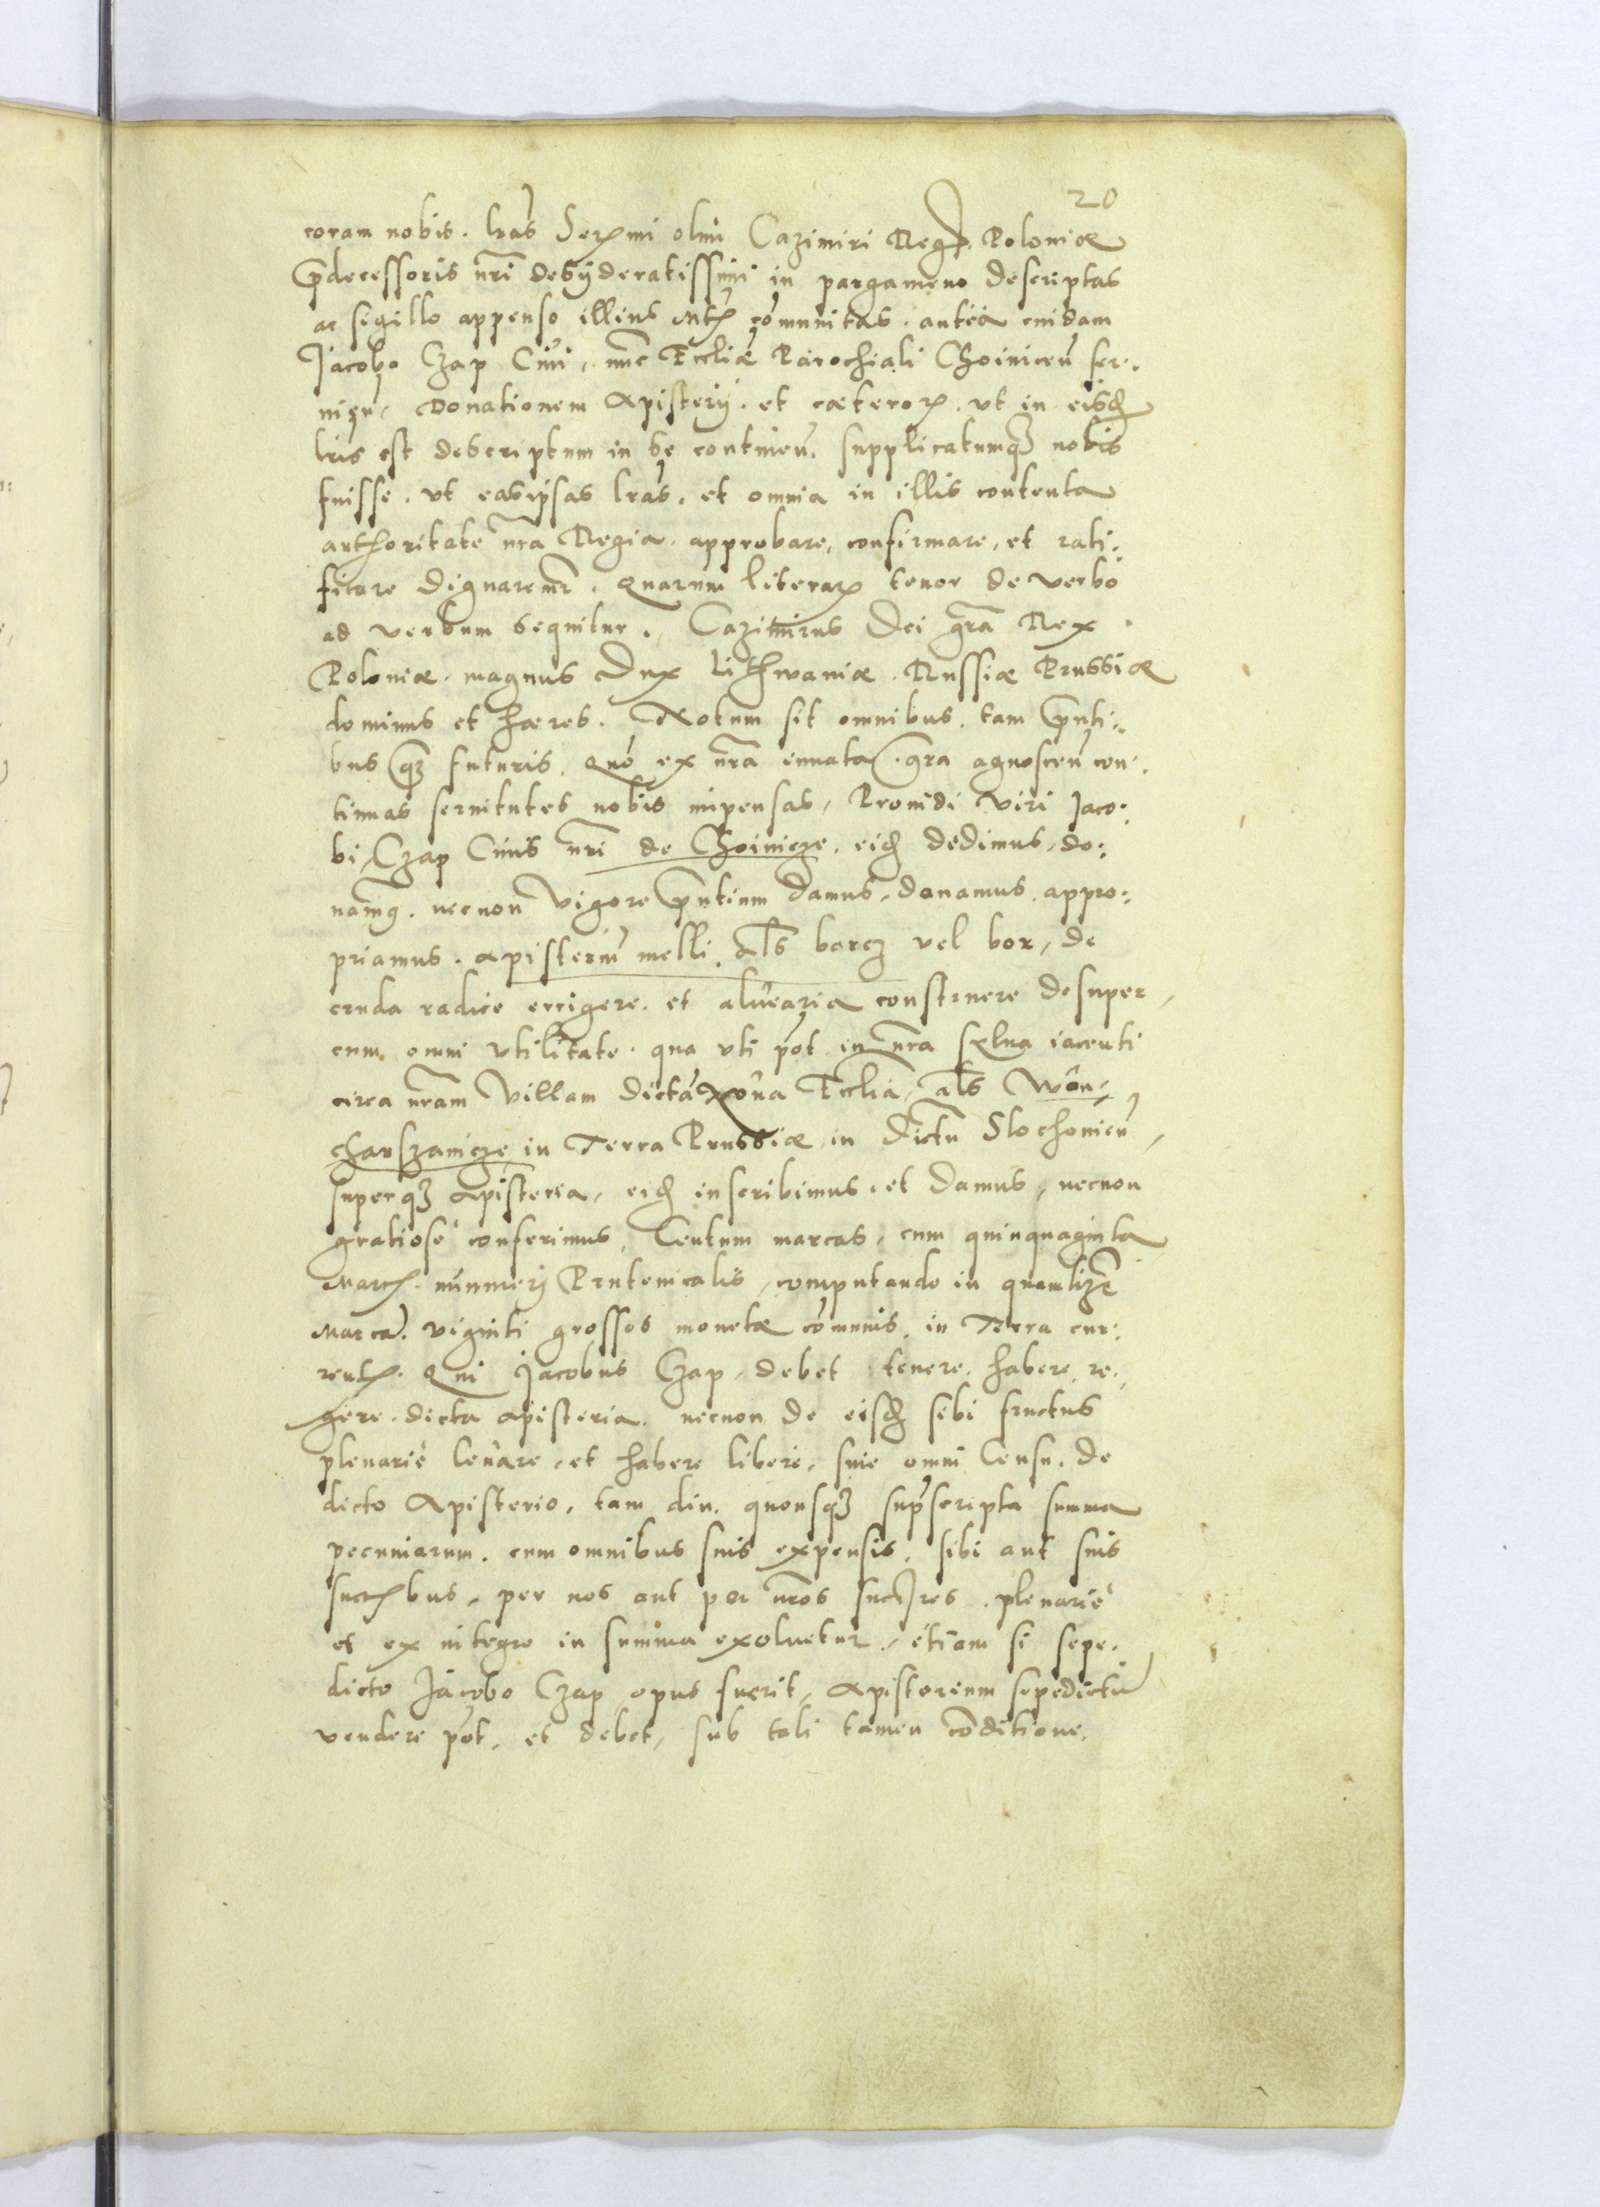 20
coram nobis. lras Sermi olim Cazimiri Regis Poloniæ
prdecessoris nri desyderatissimi in pargameno descriptas
ac sigillo appenso illius Mts comunitas. antea cuidam
Jacobo Czap Ciui, nunc Eccliæ Parochiali Choinicen ser:
uien, Donationem Apisterij. et cæteror. vt in eisd
lris est descriptum in se continen. supplicatumqz nobis
fuisse. vt easipsas lras, et omnia in illis contenta
authoritate nra Regia approbare, confirmare, et rati:
ficare dignaremr. Quarum literar tenor de verbo
ad verbum sequitur. Cazimirus Dei gra Rex
Poloniæ magnus Dux Lithwaniæ Russiæ Prussiæ
dominus et hæres. Notum sit omnibus tam prnti:
bus qz futuris, Quo ex nra innata gra agnoscen con:
tinuas seruitutes nobis impensas, Prouidi viri Jaco:
bi Czap Ciuis nri de Choinicze. eid dedimus, do:
namg. necnon vigore prntium damus, donamus appro:
priamus. apisterium melli. als barcz vel bor, de
cruda radice errigere. et aluearia construere desuper
cum omni vtilitate. qua vti pot in nra sylua iacenti
circa nram villam dicta Noua Ecclia, als Won:
charszanicze in Terra Prussiæ in Dictu Slochonicen,
superqz apisteria, eid inscribimus. et damus, necnon
gratiose conferimus, Centum marcas, cum quinquaginta
March. nummerj Prutenicalis, computando in quamlizt
Marca. viginti grossos monetæ comunis. in Terra cur:
rent. Qui Jacobus Czap debet tenere. habere re:
gere. dicta apisteria. necnon de eisd sibi fructus
plenarie leuare, et habere libere, sine omni Censu. de
dicto Apisterio, tam diu. quousqz suprscripta summa
pecuniarum. cum omnibus suis expensis, sibi aut suis
succibus, per nos aut per nros succres. plenarie
et ex integro in summa exoluetur, etiam si sepe.
dicto Jacobo Czap opus fuerit, Apisterium sepedictu
vendere pot, et debet, sub tali tamen conditione,